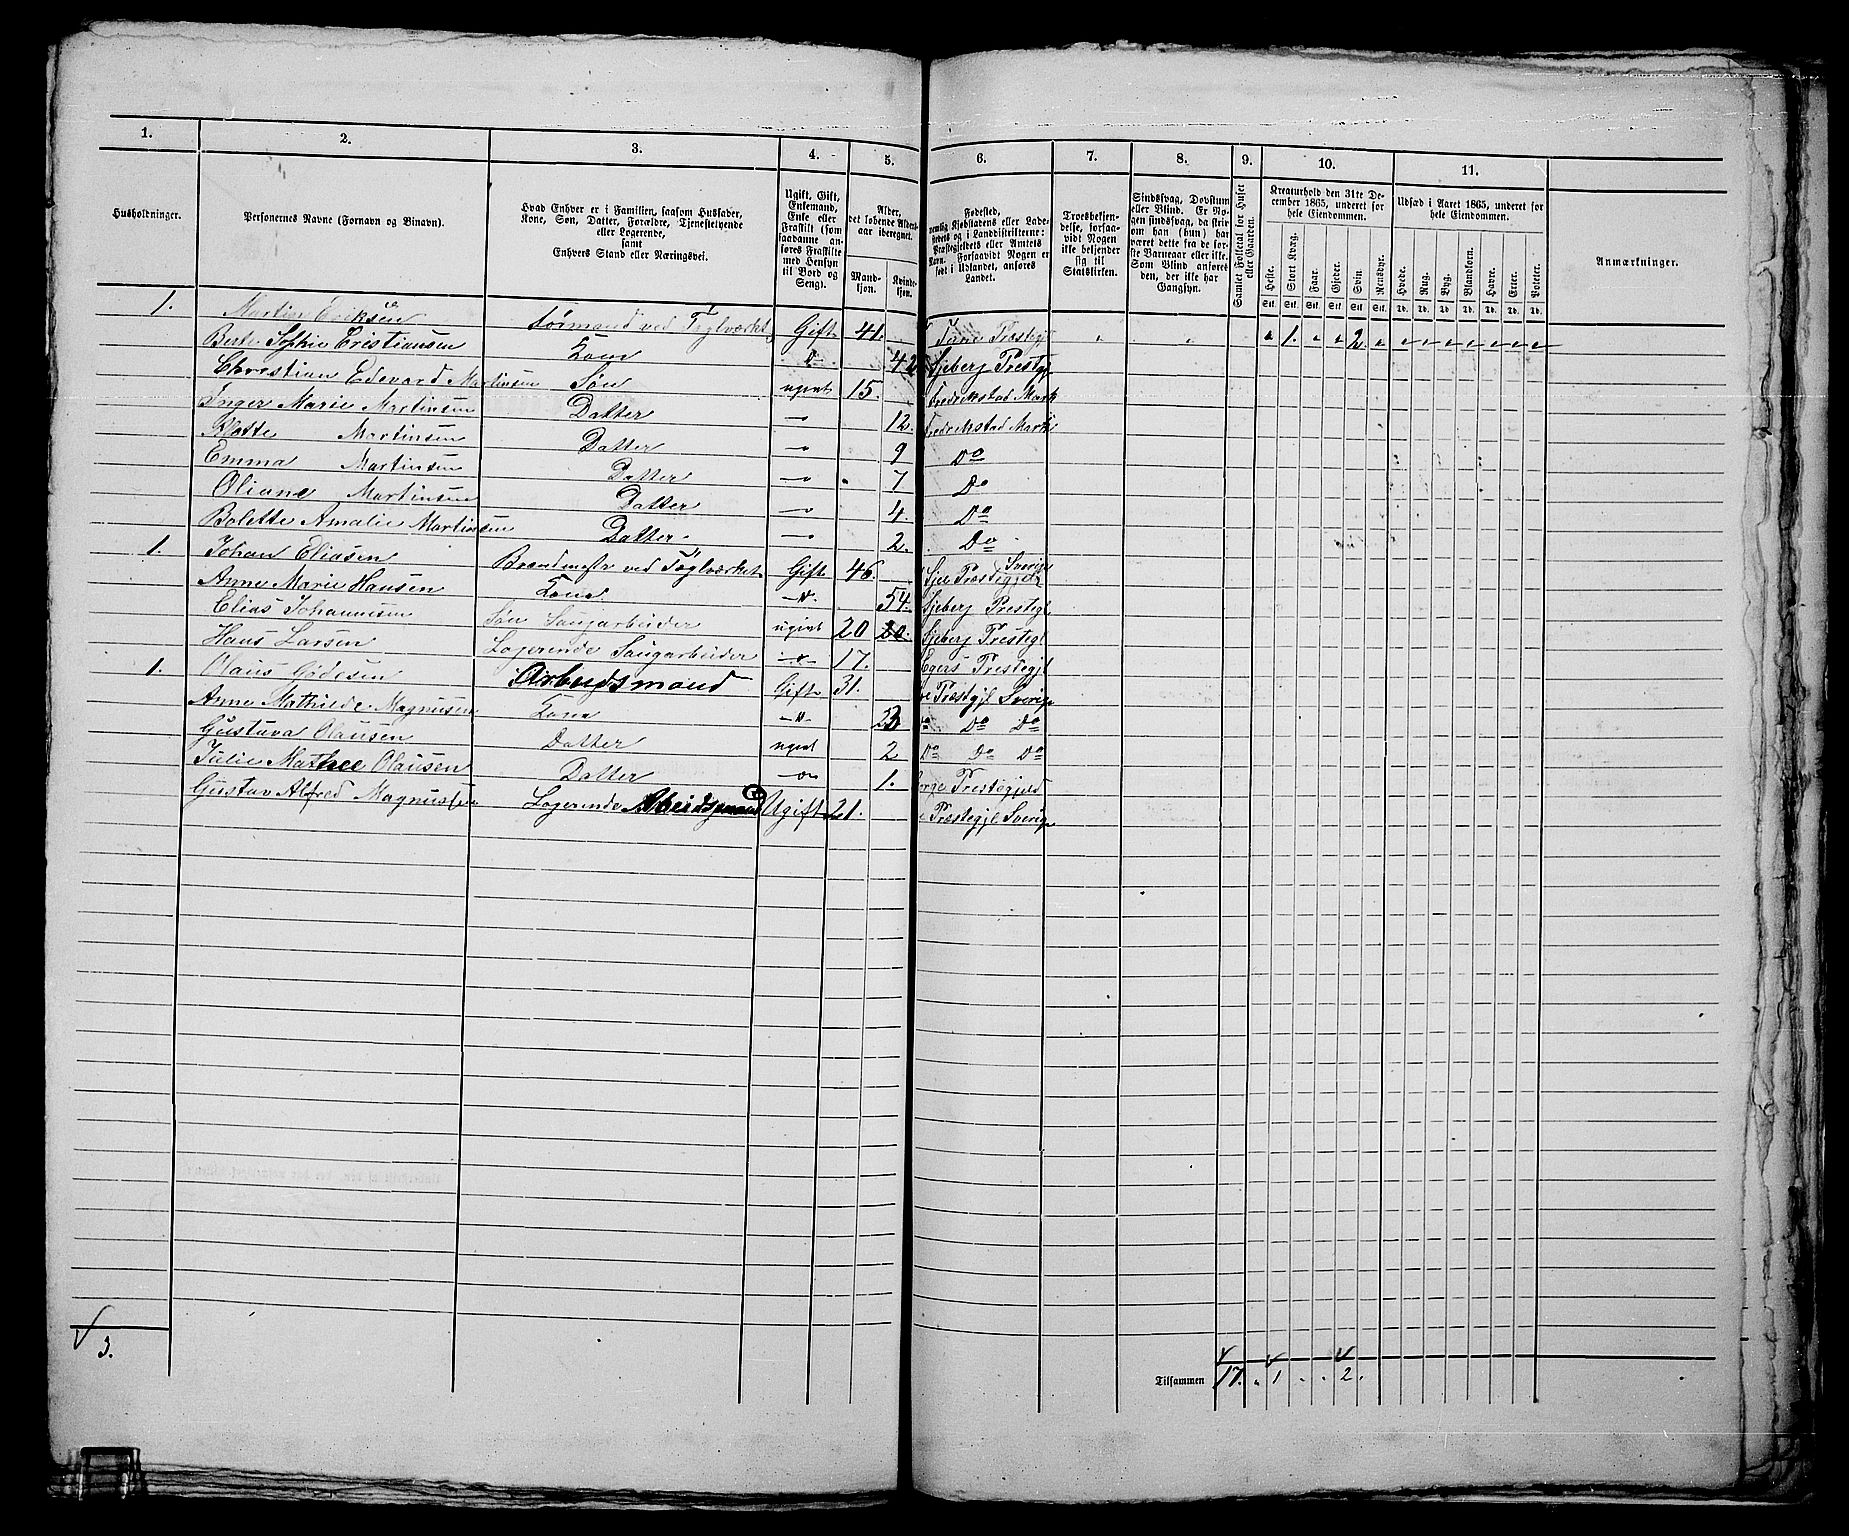 1. 2. 3. 4. 5. 6. 7. 8. 9. 10. 11.
Husholdninger.
Personernes Navne (Fornavn og Binavn).
Hvad Enhver er i Familien, saasom Husfader,
Kone, Søn, Datter, Forældre, Tjenestetyende
eller Logerende,
samt
Enhvers Stand eller Næringsvei.
Ugift, Gift,
Enkemand,
Enke eller
Fraskilt (som
saadanne an-
føres Fraskilte
med Hensyn
til Bord og
Seng).
Alder,
det løbende Alders-
aar iberegnet.
Mand-
kjøn.
Kvinde-
kjøn.
Fødested,
nemlig Kjøbstadens eller Lade-
stedets og i Landdistrikterne:
Præstegjeldets eller Amtets
Navn. Forsaavidt Nogen er
født i Udlandet, anføres
Landet.
Troesbekjen-
delse, forsaa-
vidt Nogen
ikke bekjender
sig til
Statskirken.
Sindssvag, Døvstum
eller Blind. Er No-
gen sindssvag, da skri-
ves om han (hun) har
været dette fra de før-
ste Barneaar eller ikke.
Som Blind anføres
den, der ikke har
Gangsyn.
Samlet Folketal for Huset
eller Gaarden.
Kreaturhold den 31te De-
cember 1865, underet for
hele Eiendommen.
Heste. Stort Kvæg. Faar. Gjeder. Svin. Rensdyr.
Stk. Stk. Stk. Stk. Stk. Stk.
Udsæd i Aaret 1865, underet for
hele Eiendommen.
Hvede. Rug. Byg. Blandkorn. Havre. Erter. Poteter.
Td. Td. Td. Td. Td. Td. Td.
Anmærkninger.
1. Martin Eriksen Formand ved Teglværket Gift 41. Præstegj " " " 1. " " 2. "
Berte Sophie Cristiansen Kone 42 Sjeberg Prestgj
Christian Edevard Martinsen Søn ugivt 15. Fredrikstad Mark
Inger Marie Martinsen Datter 12. Fredrikstad Mark
Martinsen Datter 9 Do
Emma Martinsen Datter 7 Do
Oliane Martinsen Datter 4. Do
Bolette Amalie Martinsen Datter 2. Do
1. Johan Eliasen Brændmestr ved Teglværket Gift 46. Præstegjeld Sverige
Anne Marie Hansen Kone 54. Sjeberg Prestegj
Elias Johannisen Søn Saugarbeider ugivt 20 20. Sjeberg Prestegj
Hans Larsen Logerende Saugarbeider 17. Egers Prestegjl
1. Olaus Gødesen Arbeidsmand Gift 31. Præstgjl Sverige
Anne Mathilde Magnusen Kone 23 Do Do Do
Gustava Olausen Datter ugivt 2 Do Do Do
Julie Mathee Olausen Datter 1. Prestegjeld
Gustav Alfred Magnussen Logerende Arbeidsmand Ugift 21. Præstegjl Sverige
3.
Tilsammen 17. " 1 " " 2. "